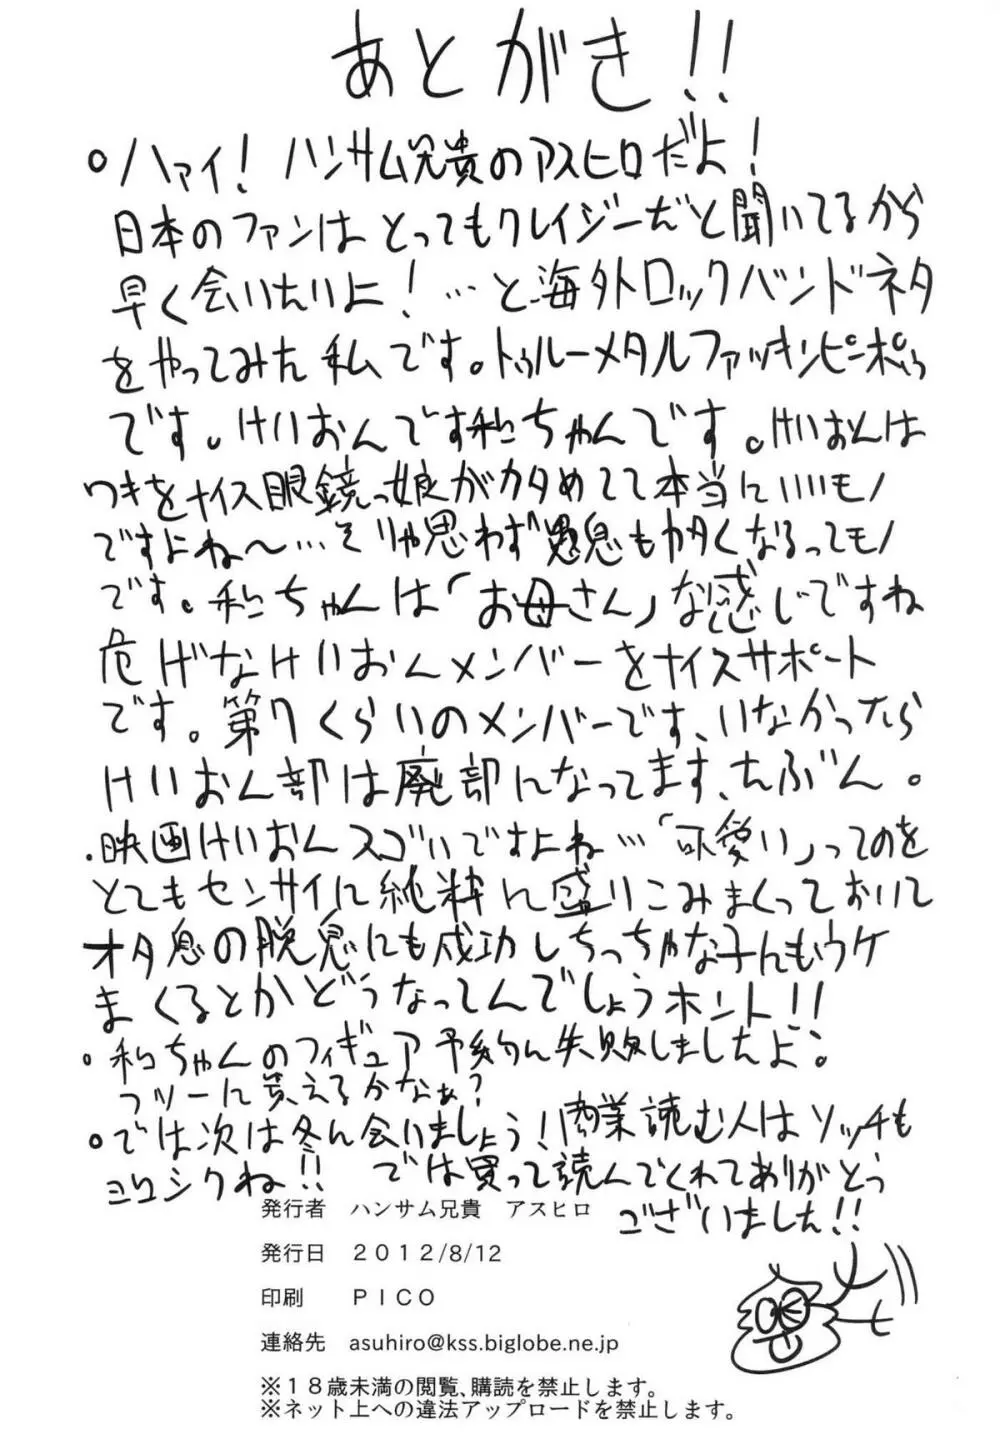 あとがき!!
。ハァイ! ハンサム兄貴のアスヒロだよ!
日本のファンはとってもクレイジーだと聞いてるから
早く会いたいよ!…と海外ロックバンドネタ
をやってみた私です。トゥルーメタルファッキンピンポぃぅ
です。けいおんです和ちゃんです。けいおんは
ワキをナイス眼鏡っ娘がカタめてて本当にいいモノ
ですよね〜…そりゃ思わず愚息もカタくなるってモノ
です。和ちゃんは「お母さん」な感じですね
危げなけいおんメンバーをナイスサポート
です。第7くらいのメンバーです、いなかったら
けいおん部は廃部になってます、たぶん。
・映画けいおんスゴいですよね…「可愛い」ってのを
とてもセンサイに純粋に盛りこみまくっておいて
オタ息の脱息にも成功しちっちゃな子にもウケ
まくるとかどうなってんでしょうホント!!
・和ちゃんのフィギュア予約に失敗しましたよ。
フツーに買えるかなぁ?
。では次は冬に会いましょう!商業読む人はソッチも
ヨロシクね!! では買って読んでくれてありがとう
ございました!!
発行者 ハンサム兄貴 アスヒロ
発行日 2012/8/12
印刷 PICO
連絡先 asuhiro@kss.biglobe.ne.jp
※18歳未満の閲覧、購読を禁止します。
※ネット上への違法アップロードを禁止します。